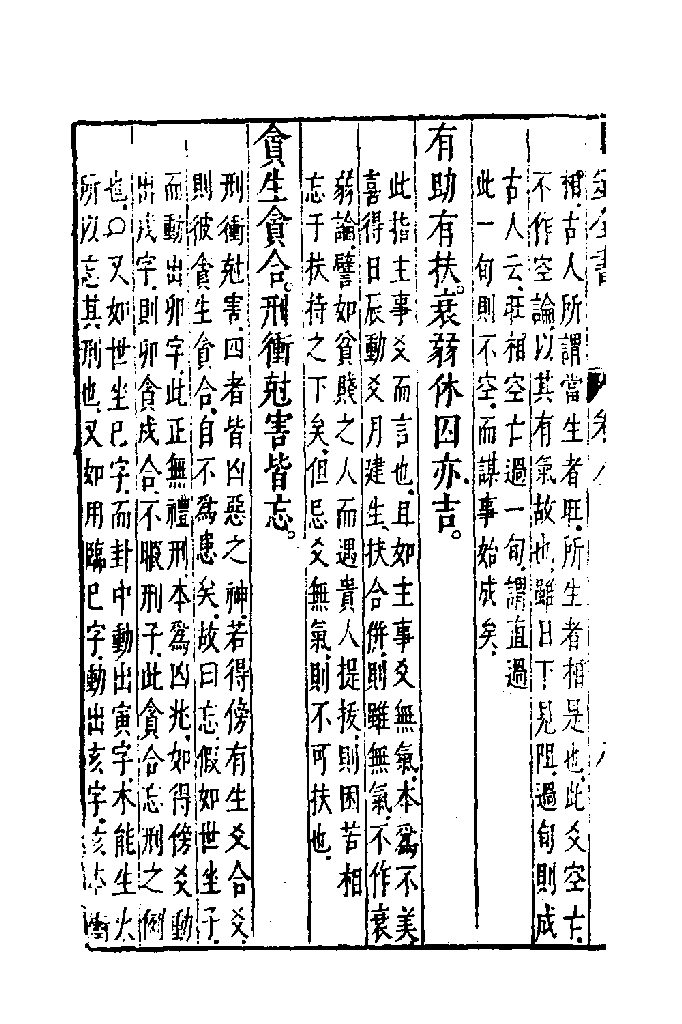 相古人所謂當生者旺所生者相是也此爻空亡
不作空論以其有氣故也雖日下見阻過旬則成
古人云旺相空亡過一旬謂直過
此一旬則不空而謀事始成矣
有助有扶衰弱休囚亦吉。
此指主事爻而言也且如主事爻無氣本為不美
喜得日辰動爻月建生扶合併則雖無氣不作衰
弱論譬如貧賤之人而遇貴人提拔則困苦相
忘于扶持之下矣但忌爻無氣則不可扶也
貪生貪合。刑衝尅害皆忘。
刑衝尅害四者皆凶惡之神若得傍有生爻合爻
則彼貪生貪合自不為患矣故曰忘假如世坐子
而動出卯字此正無禮刑本為凶兆如得傍爻動
出戌字則卯貪戌合不暇刑子此貪合忘刑之例
也〇又如世坐巳字而卦中動出寅字木能生火
所以忘其刑也又如用臨巳字動出亥字亥本衝